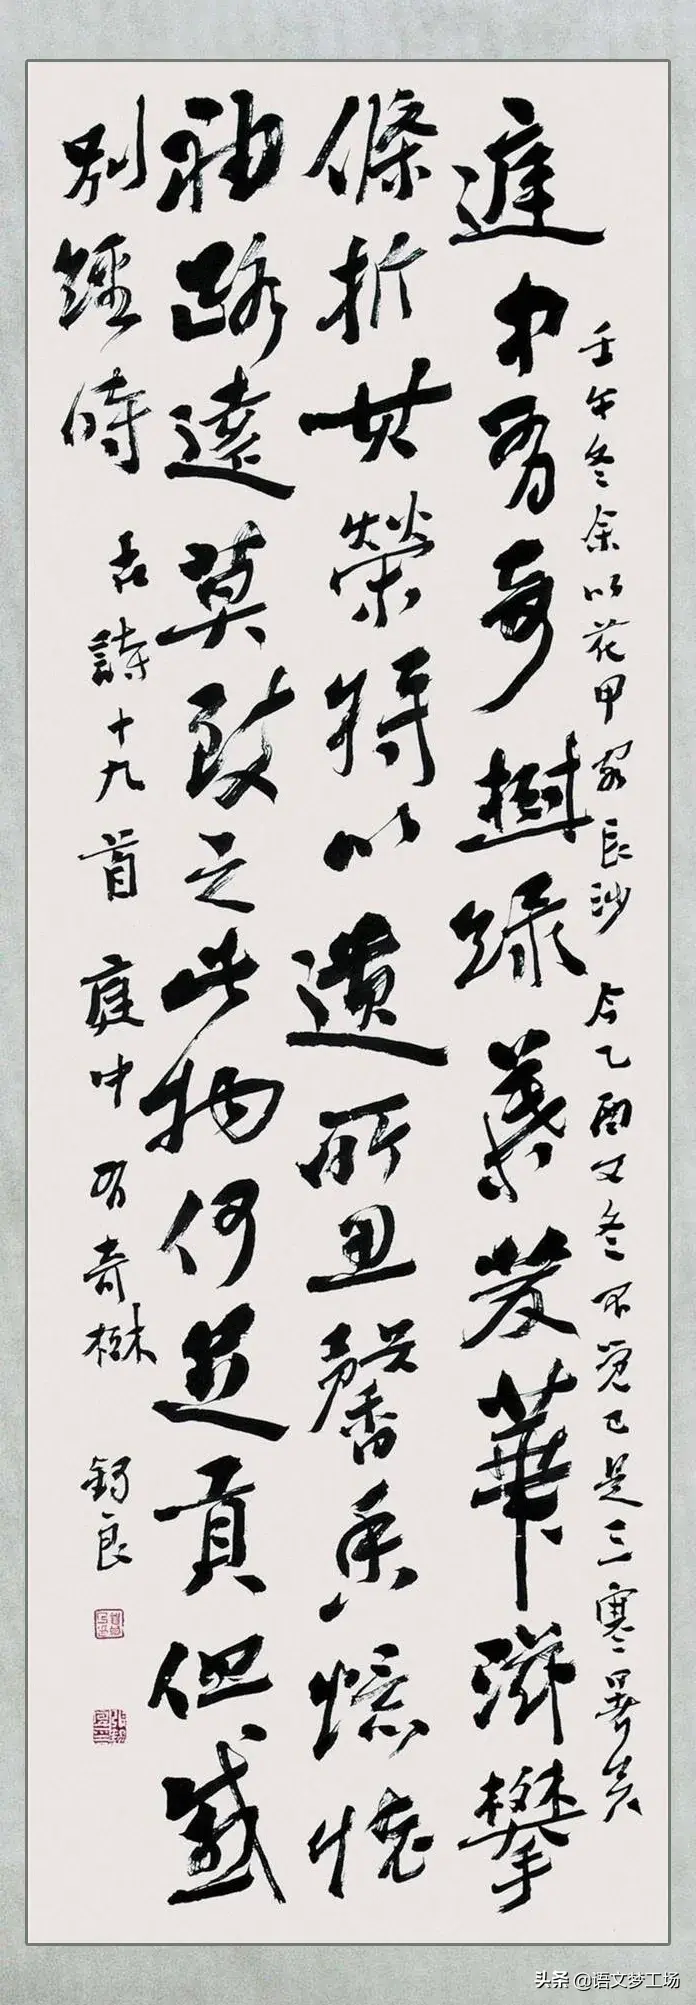 壬午冬余以花甲客長沙今乙酉又冬不覺已是三寒暑矣
庭中有奇樹綠葉發華滋攀
條折其榮將以遺所思馨香憶懷
袖路遠莫致之此物何足貢但感
別經時
古詩十九首庭中有奇樹 錫良
头条 @语文梦工场